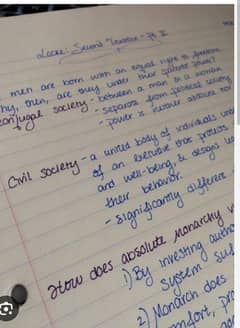 Locke: Second Treatise - Pt II
men are born with an equal right to freedom
why, then, are they under their parents' power?
conjugal society - between a man & a woman
- separate from political society
- power is neither absolute nor
Civil society - a united body of individuals under
of an executive that protects
and well-being, & designs
their behavior.
- significantly different
How does absolute monarchy
1) By investing
system
2) Monarch does
comfort,